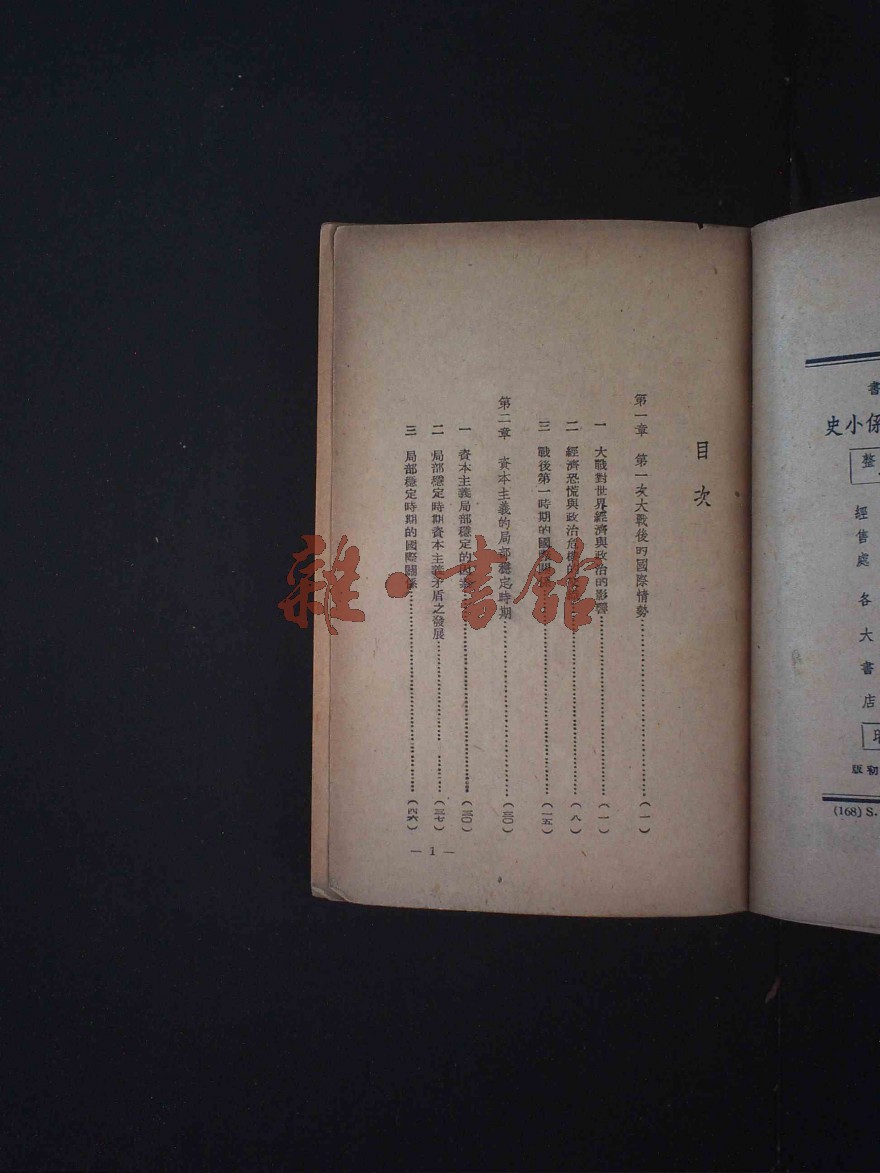 書
係小史
整
經售處 各大書店
初版
(168) S.
目次
第一章 第一次大戰後的國際情勢……(一)
一 大戰對世界經濟與政治的影響……(一)
二 經濟恐慌與政治危機的……(八)
三 戰後第一時期的國際關係……(一五)
第二章 資本主義的局部穩定時期……(三〇)
一 資本主義局部穩定的因素……(三〇)
二 局部穩定時期資本主義矛盾之發展……(三七)
三 局部穩定時期的國際關係……(四六)
— 1 —
雜·書館